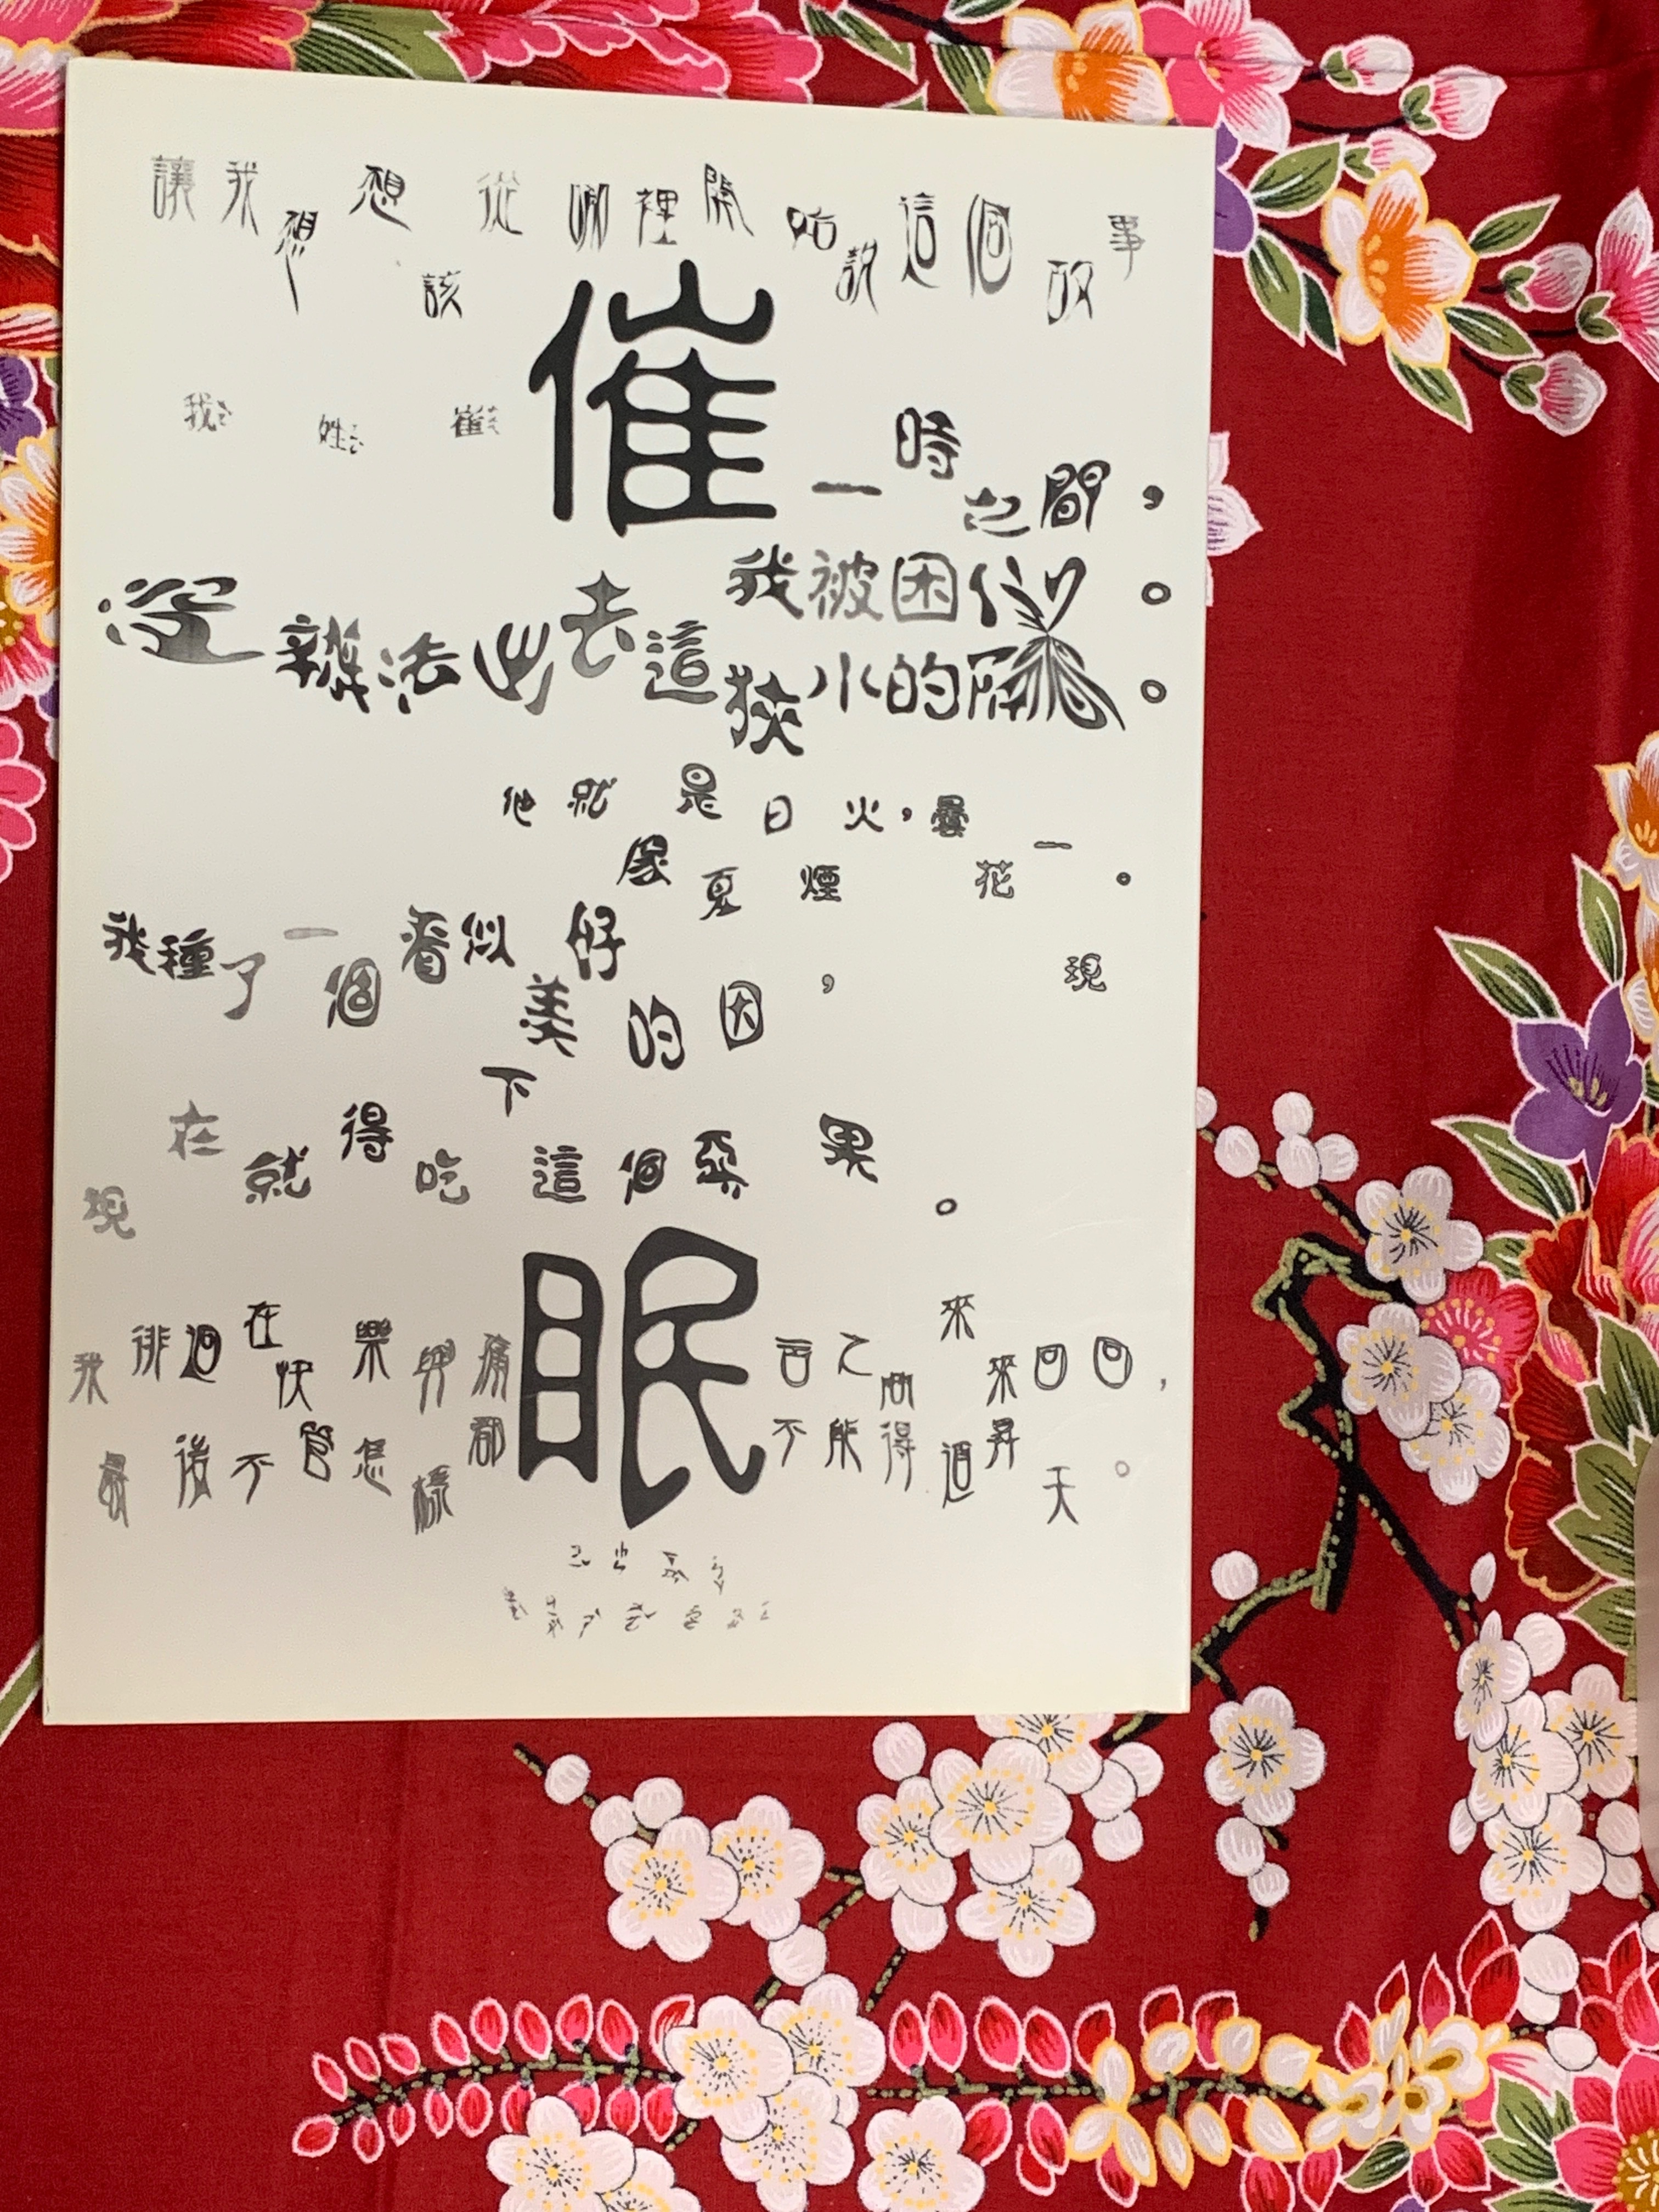 讓我想想該從哪裡開始說這個故事
我姓崔
催
一時之間，
我被困住。
沒辦法出去這狹小的隔。
他就是日火，曇花一現。
我種了一個看似好美的因，
現在就得吃下這個惡果。
眠
我徘迴在快樂與痛苦之間來來回回，
最後不管怎樣都不能得道昇天。